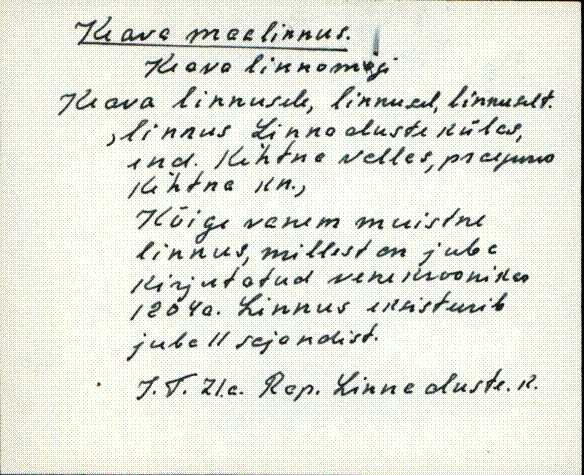 Keava maalinnus.
Keava linnamägi
Keava linnusele, linnusel, linnuselt.
, linnus Linnaaluste külas,
end. Kehtna vallas, praegune
Kehtna kn.,
Kõige vanem muistne
linnus, millest on juba
kirjutatud vene kroonikas
1204a. Linnus eksisteerib
juba 11 sajandist.
J. T. 21.a. Rap. Linnaaluste. k.